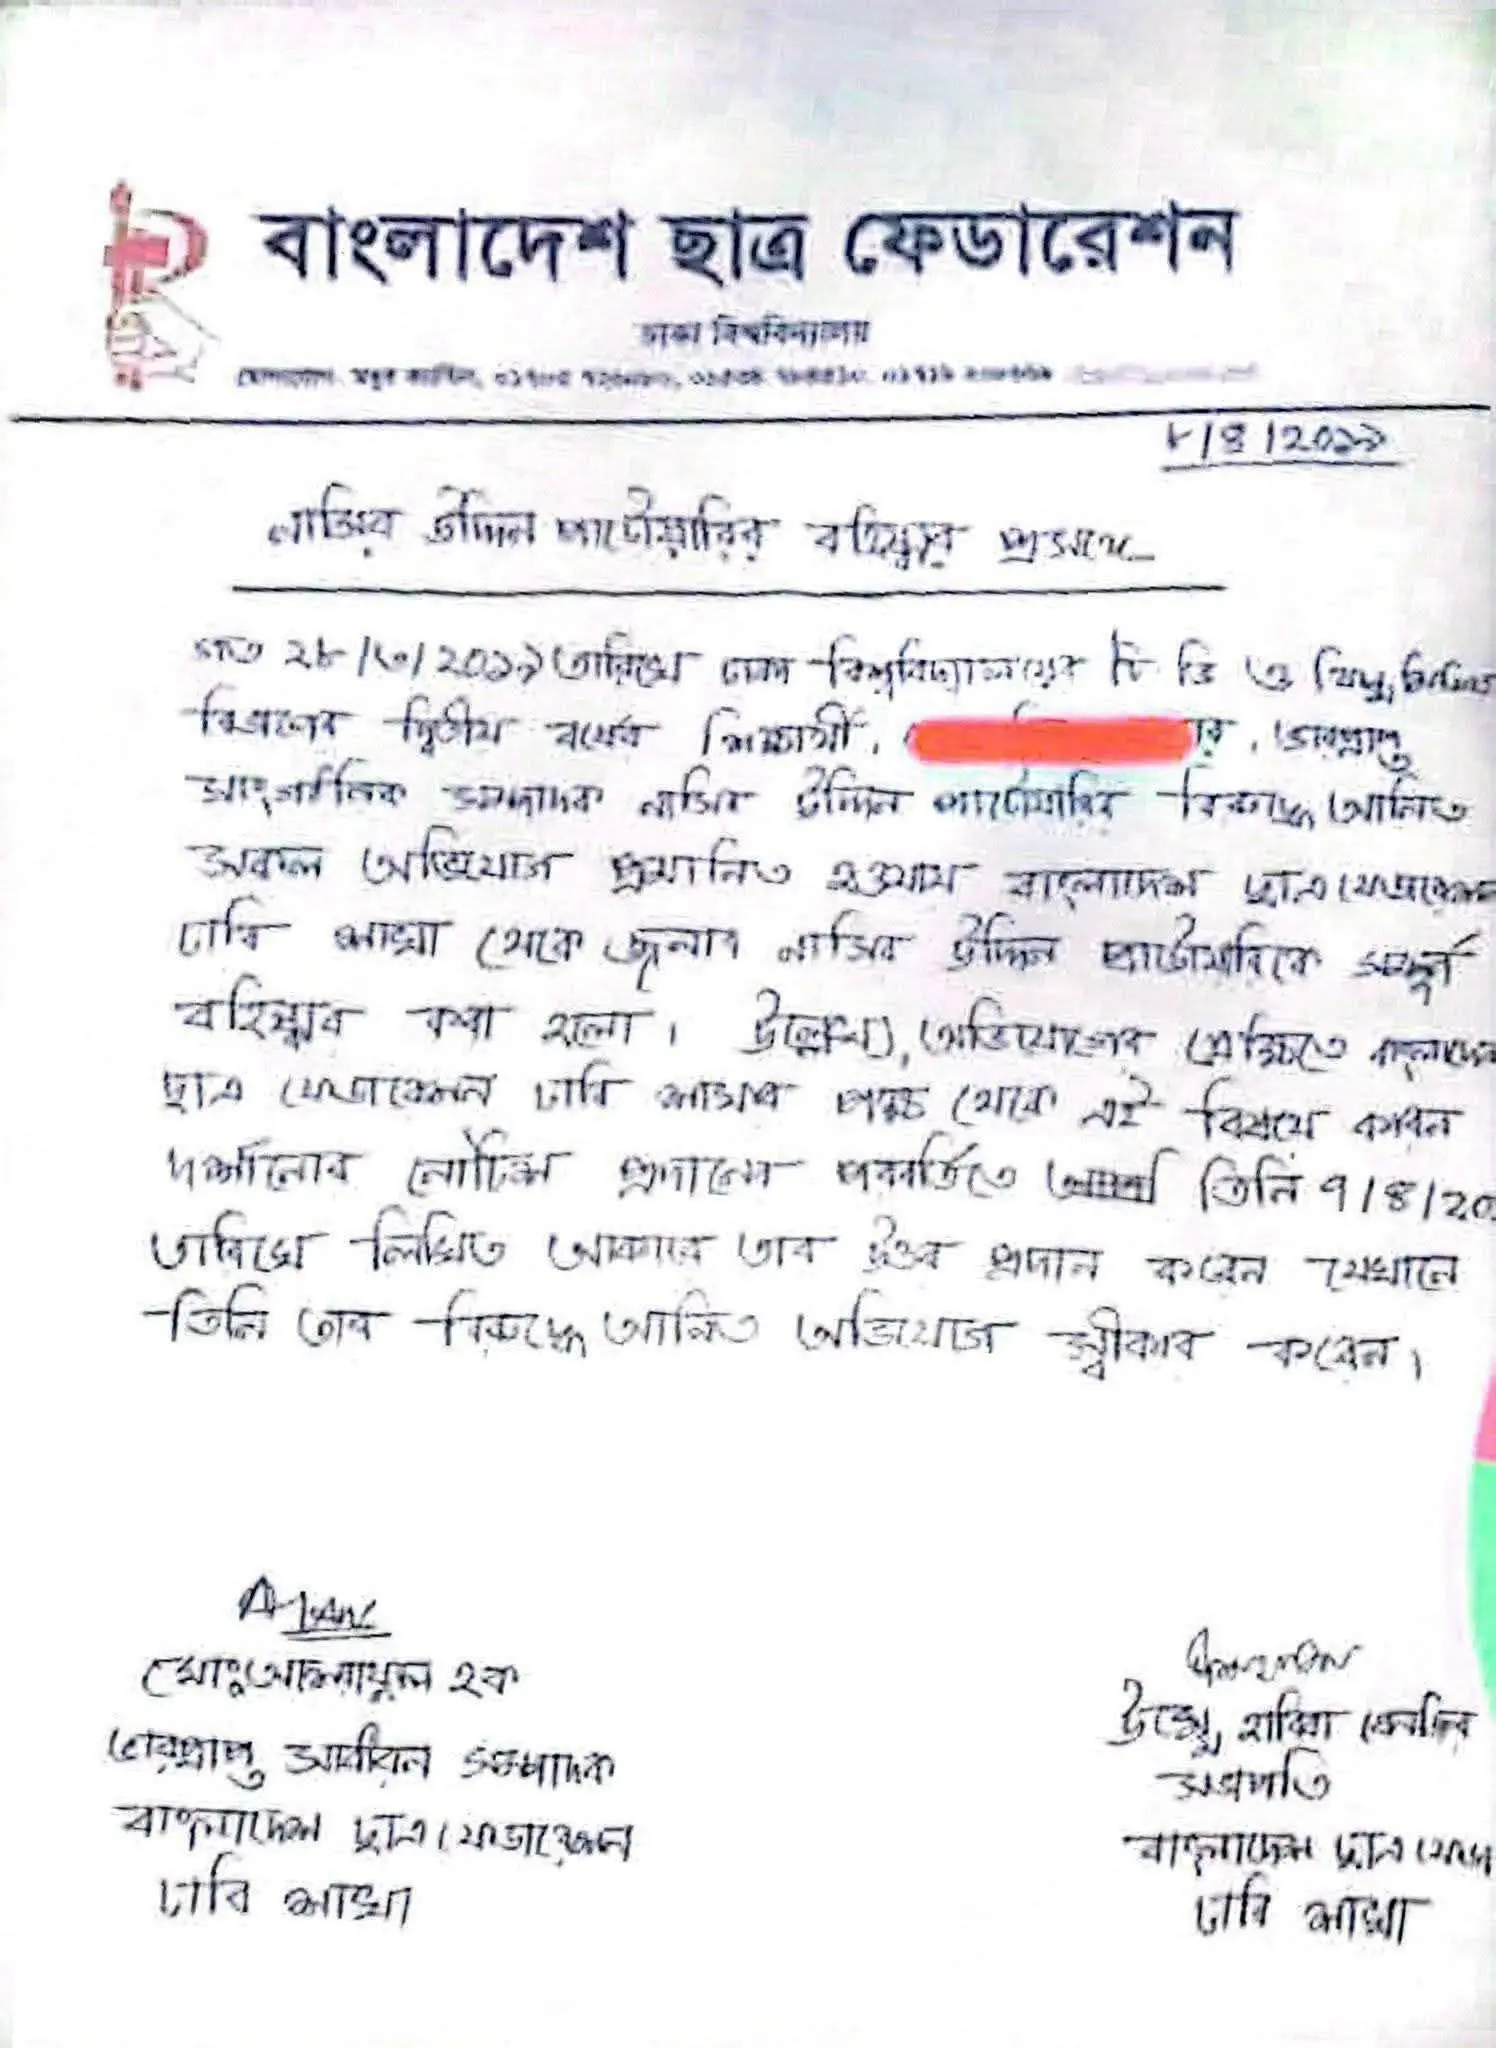 বাংলাদেশ ছাত্র ফেডারেশন
ঢাকা বিশ্ববিদ্যালয়
৮/৪/২০১৯
নাসির উদ্দিন পাটোয়ারির বহিষ্কার প্রসঙ্গে
গত ২৮/৩/২০১৯ তারিখে ঢাকা বিশ্ববিদ্যালয়ের টি ভি ও ফিল্ম
বিভাগের দ্বিতীয় বর্ষের শিক্ষার্থী, র, ভারপ্রাপ্ত
সাংগঠনিক সম্পাদক নাসির উদ্দিন পাটোয়ারির বিরুদ্ধে আনিত
সকল অভিযোগ প্রমানিত হওয়ায় বাংলাদেশ ছাত্র ফেডারেশন
ঢাবি শাখা থেকে জনাব নাসির উদ্দিন পাটোয়ারিকে সম্পূর্ণ
বহিষ্কার করা হলো। উল্লেখ্য, অভিযোগের প্রেক্ষিতে বাংলাদেশ
ছাত্র ফেডারেশন ঢাবি শাখার পক্ষ থেকে এই বিষয়ে কারন
দর্শানোর নোটিশ প্রদানের পরবর্তিতে তিনি ৭/৪/২০
তারিখে লিখিত আকারে তার উত্তর প্রদান করেন যেখানে
তিনি তার বিরুদ্ধে আনিত অভিযোগ স্বীকার করেন।
মোঃ আলামুল হক
ভারপ্রাপ্ত সাধারন সম্পাদক
বাংলাদেশ ছাত্র ফেডারেশন
ঢাবি শাখা
উম্মে হাবিবা বেনজির
সভাপতি
বাংলাদেশ ছাত্র ফেডা
ঢাবি শাখা